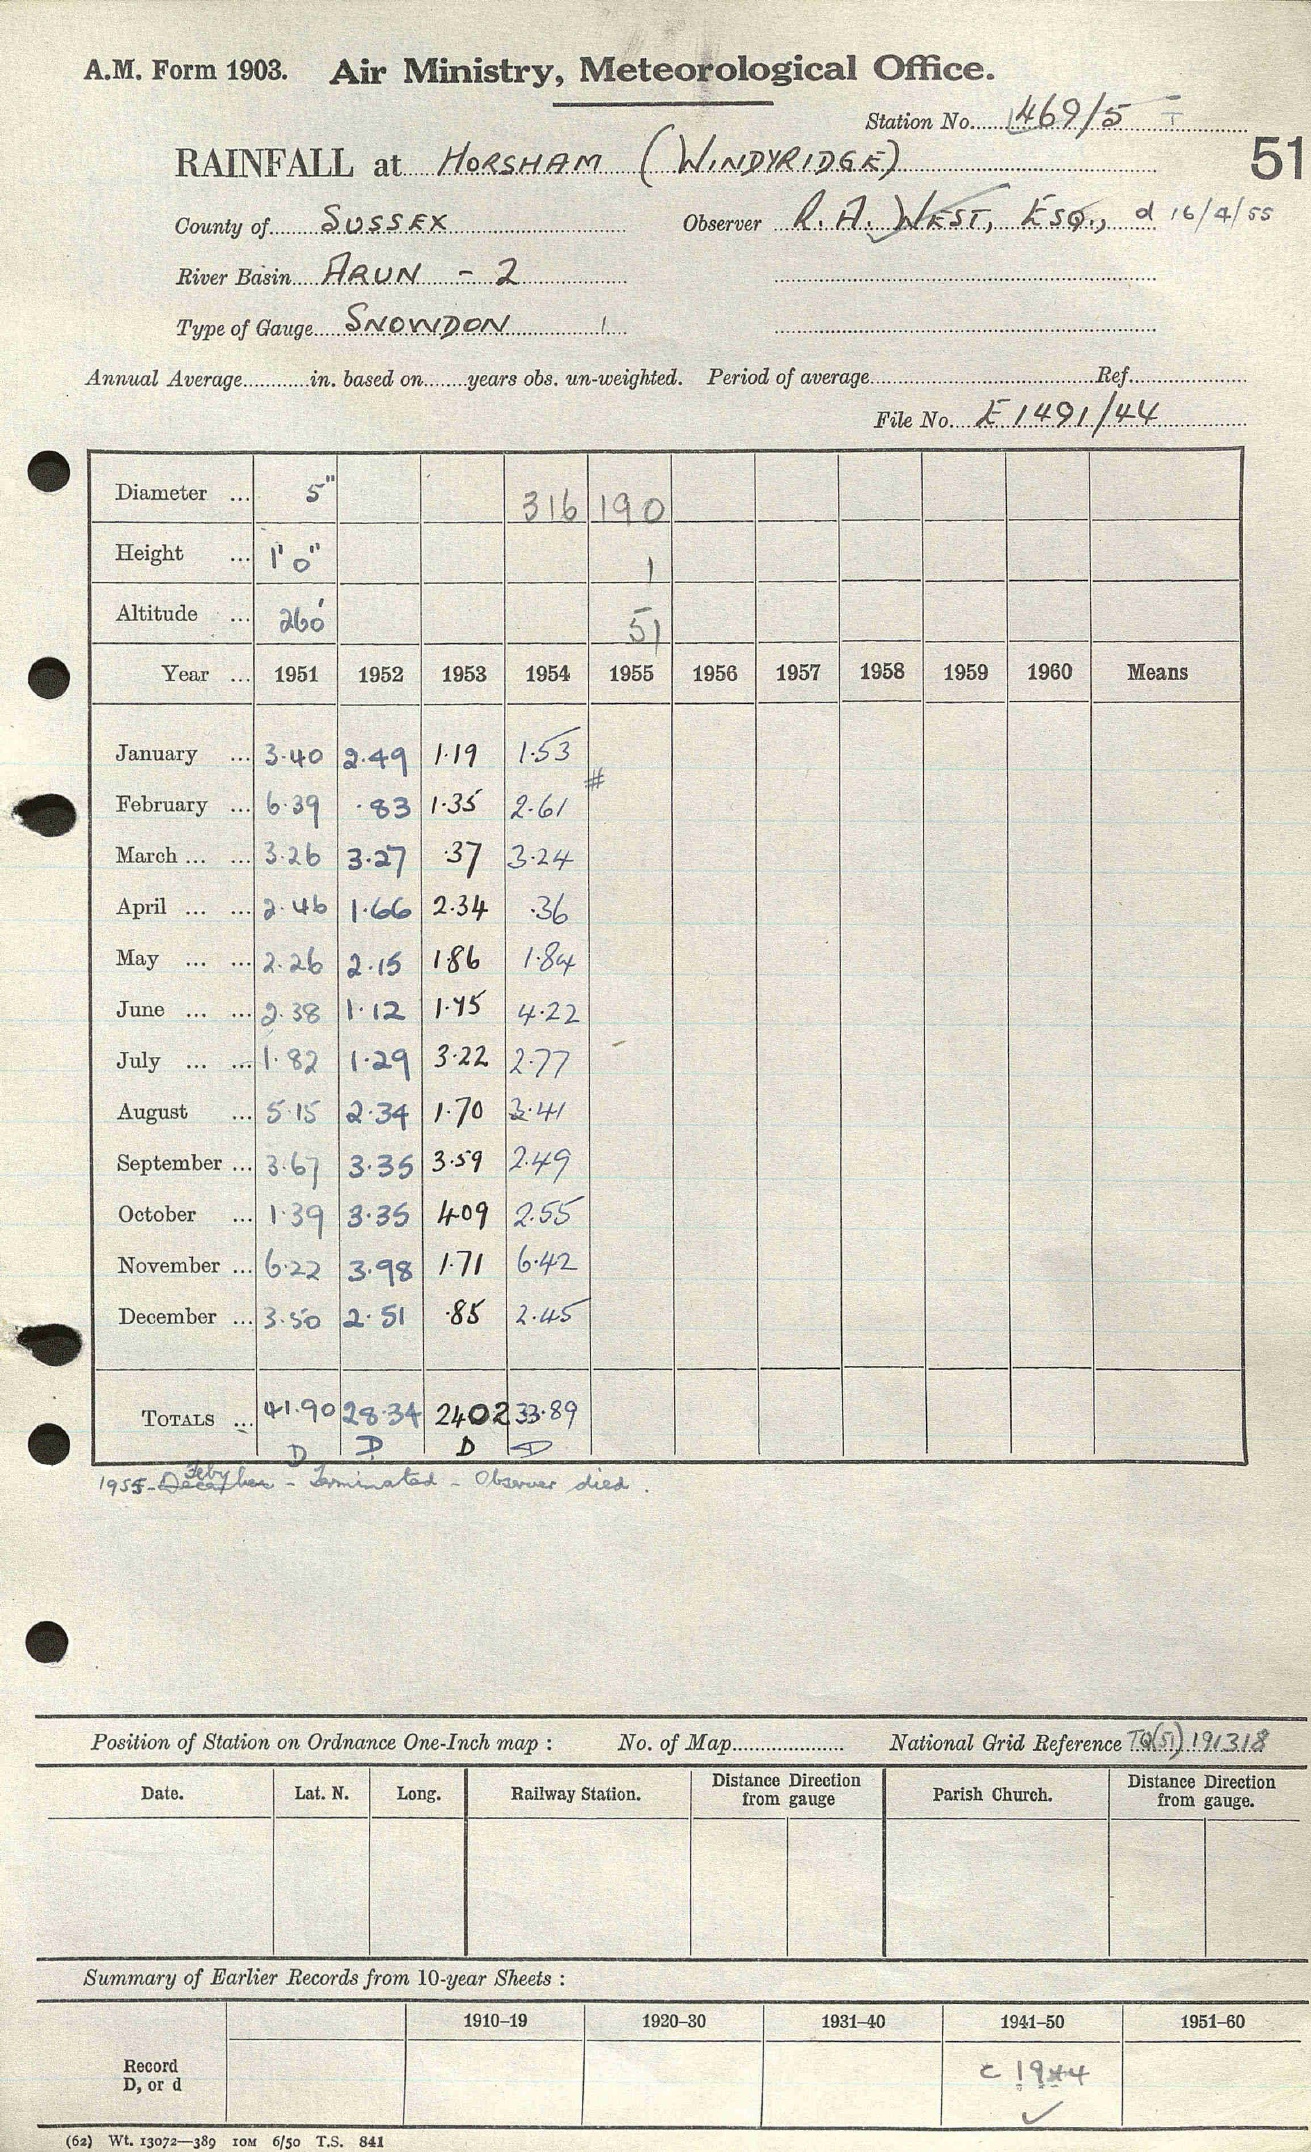 A.M. Form 1903. Air Ministry, Meteorological Office.
Station No. 469/5 T
RAINFALL at HORSHAM (WINDYRIDGE)
51
County of SUSSEX Observer R. A. WEST, ESQ., d 16/4/55
River Basin ARUN - 2
Type of Gauge SNOWDON 1
Annual Average in. based on years obs. un-weighted. Period of average Ref.
File No. E 1491/44
Diameter ... 5" 316 190
Height ... 1' 0" 1
Altitude ... 260' 51
Year ... 1951 1952 1953 1954 1955 1956 1957 1958 1959 1960 Means
January ... 3.40 2.49 1.19 1.53
#
February ... 6.39 .83 1.35 2.61
March ... ... 3.26 3.27 .37 3.24
April ... ... 2.46 1.66 2.34 .36
May ... ... 2.26 2.15 1.86 1.84
June ... ... 2.38 1.12 1.45 4.22
July ... ... 1.82 1.29 3.22 2.77
August ... 5.15 2.34 1.70 3.41
September ... 3.67 3.35 3.59 2.49
October ... 1.39 3.35 4.09 2.55
November ... 6.22 3.98 1.71 6.42
December ... 3.50 2.51 .85 2.45
TOTALS ... 41.90 28.34 24.02 33.89
D D D D
1955 - Feby - Terminated - Observer died.
Position of Station on Ordnance One-Inch map : No. of Map National Grid Reference TQ(51) 191318
Date. Lat. N. Long. Railway Station. Distance Direction from gauge Parish Church. Distance Direction from gauge.
Summary of Earlier Records from 10-year Sheets :
1910–19 1920–30 1931–40 1941–50 1951–60
Record D, or d c 1944
(62) Wt. 13072—389 10M 6/50 T.S. 841